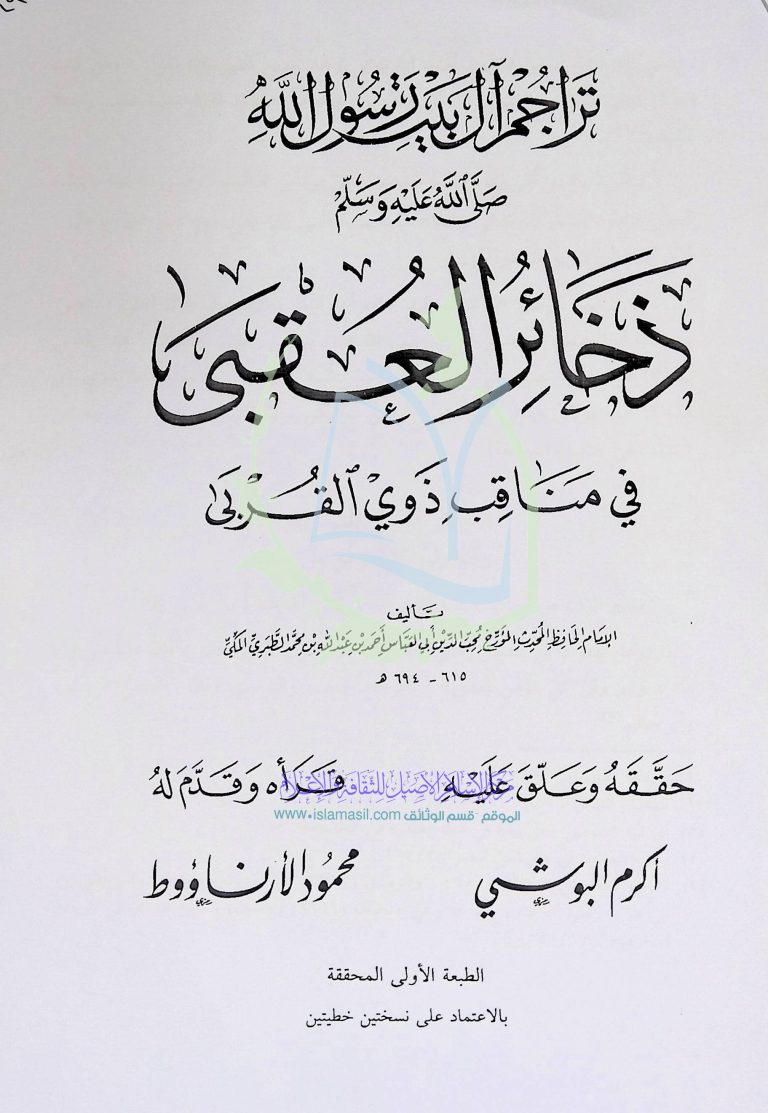 تراجم آل بيت رسول الله
صلى الله عليه وسلم
ذخائر العقبى
في مناقب ذوي القربى
تأليف
الإمام الحافظ المحدث المؤرخ محب الدين أبي العباس أحمد بن عبد الله بن محمد الطبري المكي
٦١٥ - ٦٩٤ هـ
حققه وعلق عليه
قرأه وقدم له
مركز الإسلام الأصيل للثقافة والإعلام
الموقع - قسم الوثائق www.islamasil.com
أكرم البوشي
محمود الأرناؤوط
الطبعة الأولى المحققة
بالاعتماد على نسختين خطيتين